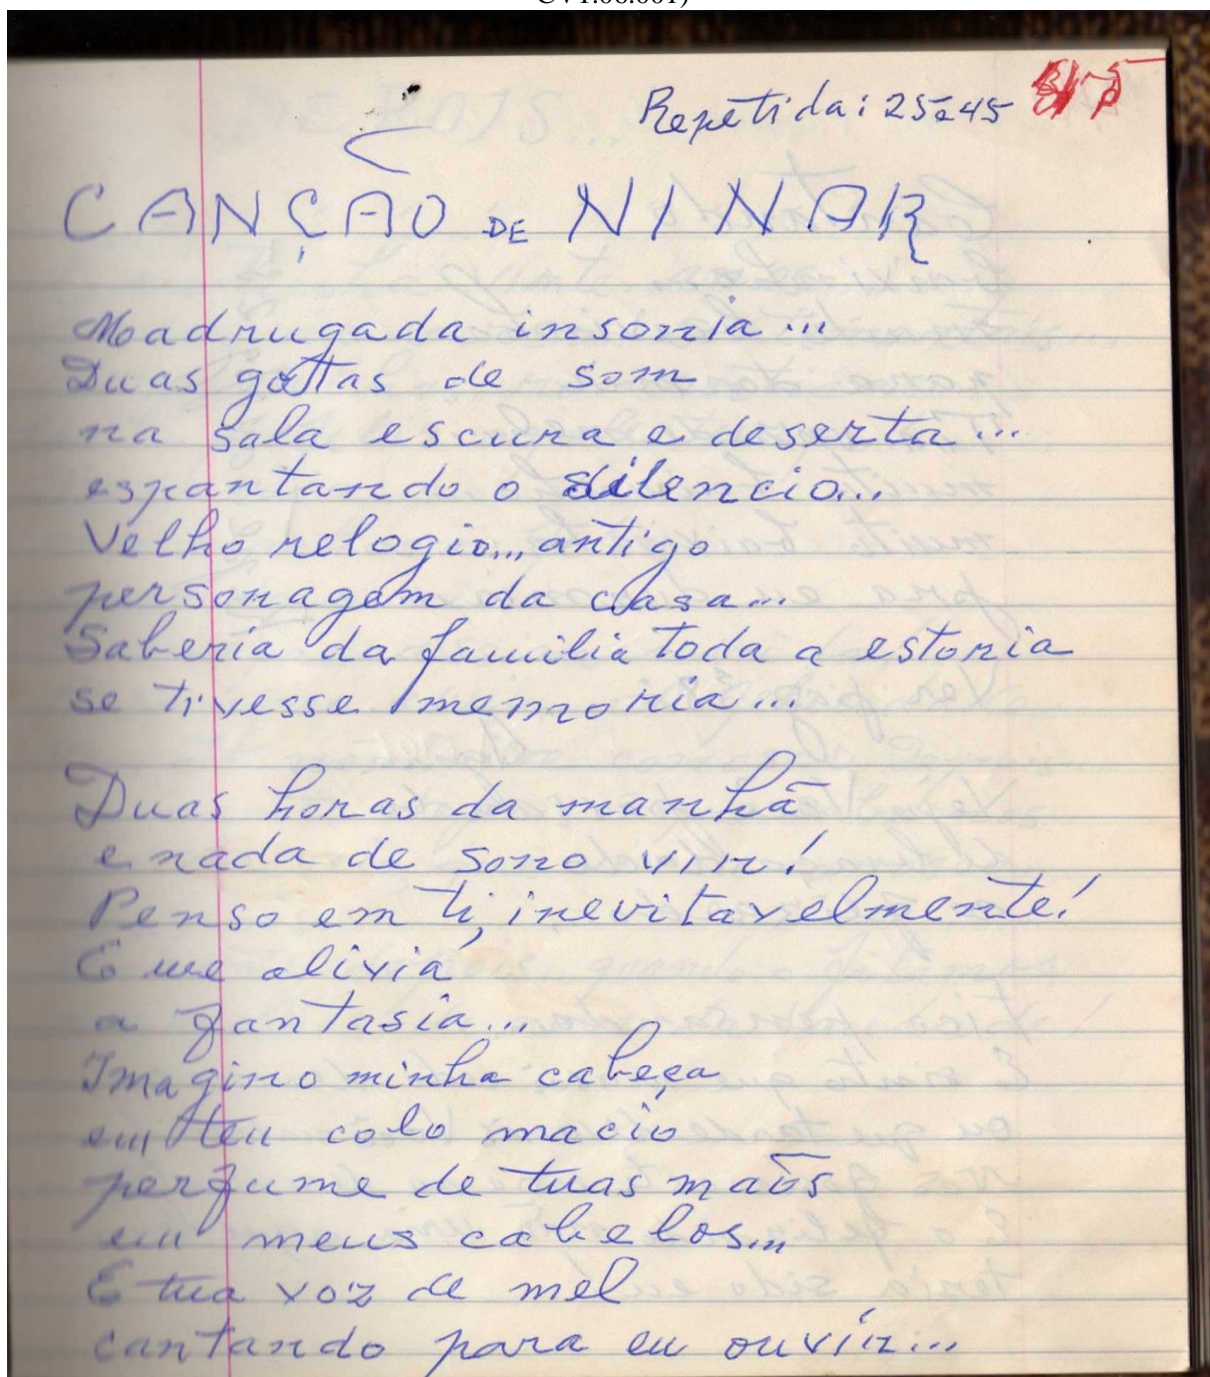 CV1.06.001)
Repetida: 25e45
CANÇÃO DE NINAR
Madrugada insonia...
Duas gottas de som
na sala escura e deserta...
espantando o silencio...
Velho relogio... antigo
personagem da casa...
Saberia da familia toda a estoria
se tivesse memoria...
Duas horas da manhã
e nada de sono vir!
Penso em ti, inevitavelmente!
E me alivia
a fantasia...
Imagino minha cabeça
em teu colo macio
perfume de tuas maõs
em meus cabelos...
E tua voz de mel
cantando para eu ouvir...